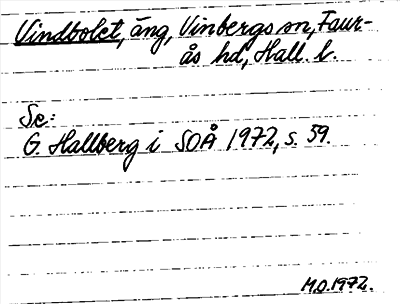 Vindbolet, äng, Vinbergs sn, Faur-
ås hd, Hall. l.
Se:
G. Hallberg i SOÅ 1972, s. 39.
M.O. 1972.